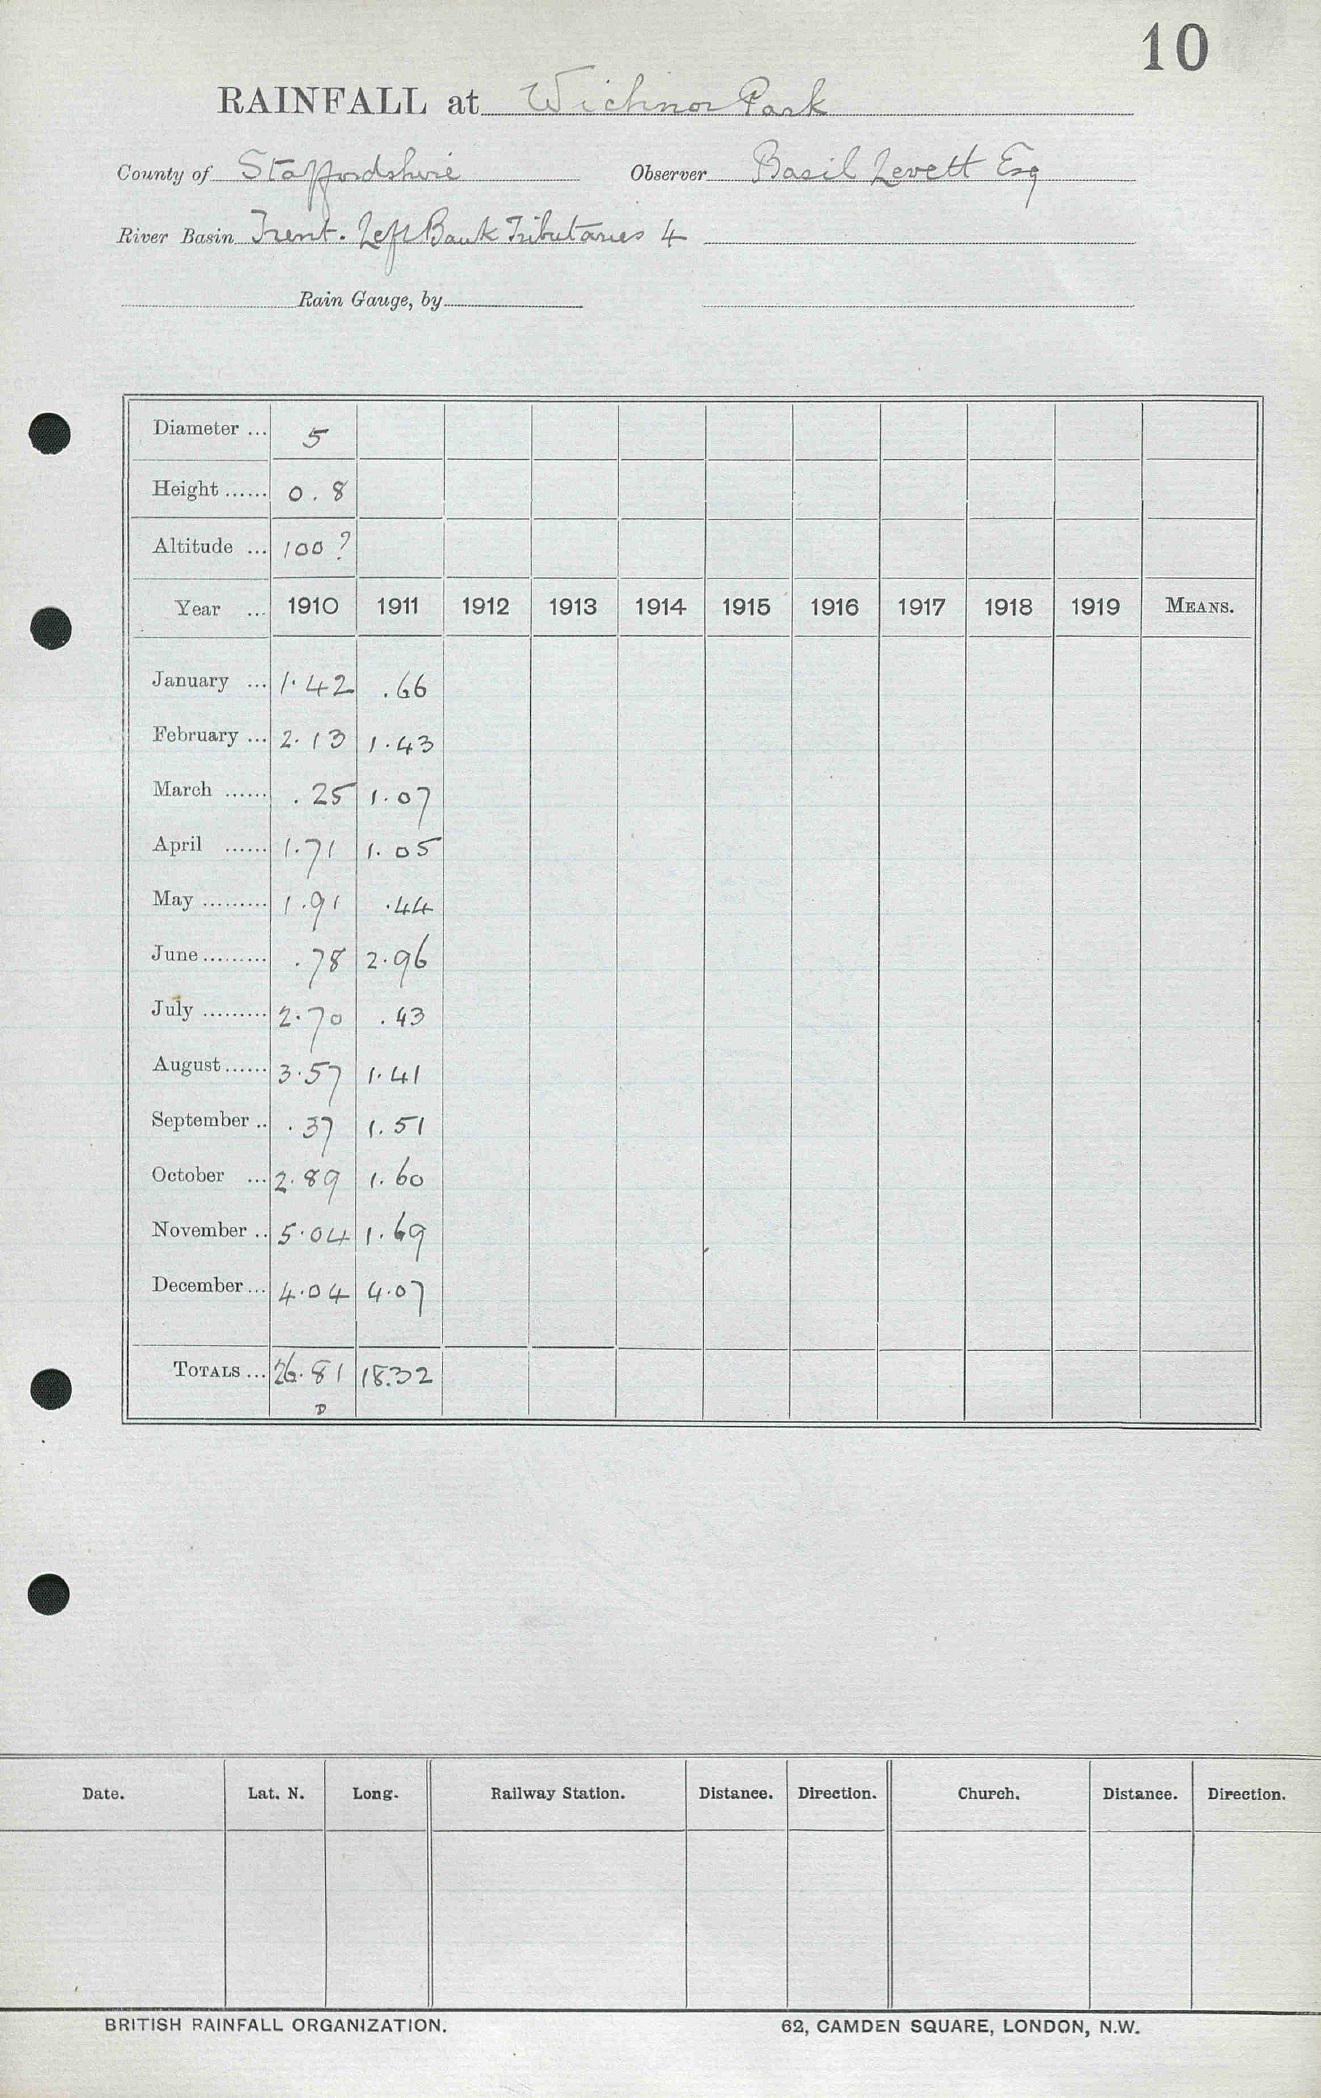 10
RAINFALL at Wichnor Park
County of Staffordshire Observer Basil Levett Esq
River Basin Trent. Left Bank Tributaries 4
Rain Gauge, by
Diameter ... 5
Height ...... 0.8
Altitude ... 100?
Year ... 1910 1911 1912 1913 1914 1915 1916 1917 1918 1919 MEANS.
January ... 1.42 .66
February ... 2.13 1.43
March ...... .25 1.07
April ...... 1.71 1.05
May ......... 1.91 .44
June ......... .78 2.96
July ......... 2.70 .43
August ...... 3.57 1.41
September .. .37 1.51
October ... 2.89 1.60
November .. 5.04 1.69
December ... 4.04 4.07
TOTALS ... 26.81 18.32
D
Date. Lat. N. Long. Railway Station. Distance. Direction. Church. Distance. Direction.
BRITISH RAINFALL ORGANIZATION. 62, CAMDEN SQUARE, LONDON, N.W.